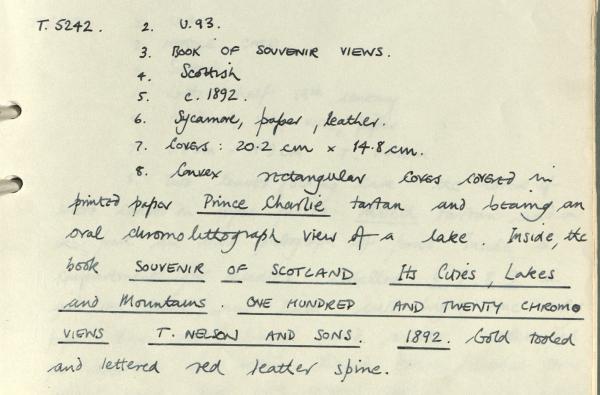 T. 5242. 2. U.93.
3. BOOK OF SOUVENIR VIEWS.
4. Scottish
5. c. 1892.
6. Sycamore, paper, leather.
7. COVERS: 20.2 cm x 14.8 cm.
8. Convex rectangular covers covered in
printed paper Prince Charlie tartan and bearing an
oval chromolithograph view of a lake. Inside, the
book SOUVENIR OF SCOTLAND Its Cities, Lakes
and Mountains. ONE HUNDRED AND TWENTY CHROMO
VIEWS T. NELSON AND SONS. 1892. Gold tooled
and lettered red leather spine.